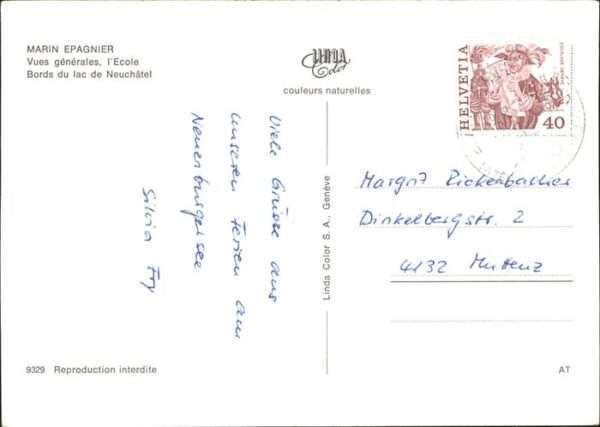 MARIN EPAGNIER
Vues générales, l'Ecole
Bords du lac de Neuchâtel
LINDA
Color
couleurs naturelles
HELVETIA
40
Viele Grüsse aus
unseren Ferien am
Neuenburgersee
Silvia Fry
Linda Color S.A., Genève
Margrit Rickenbacher
Dinkelbergstr. 2
4132 Muttenz
9329 Reproduction interdite
AT